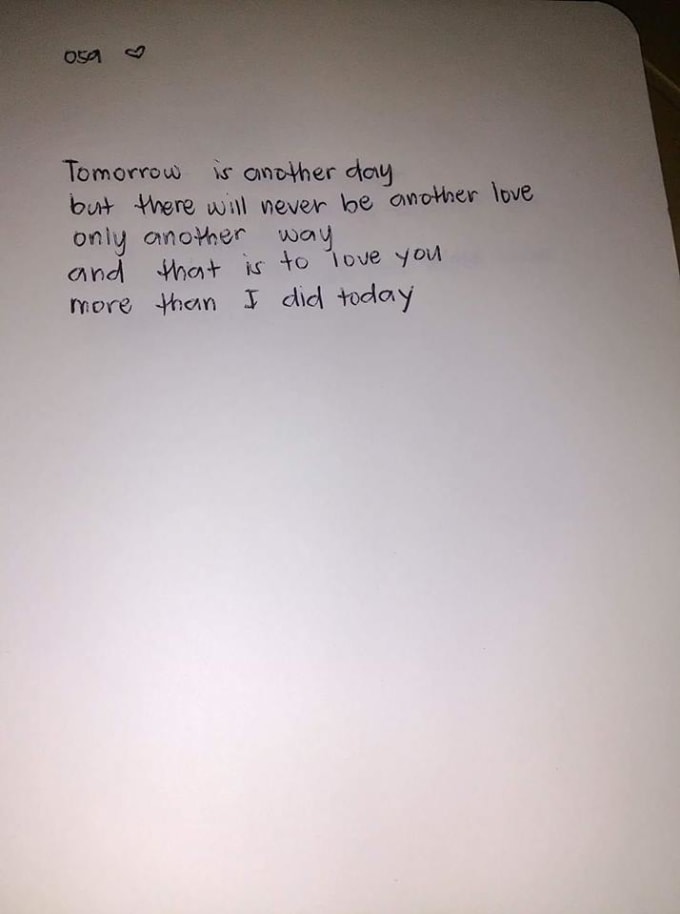 osa ♡
Tomorrow is another day
but there will never be another love
only another way
and that is to love you
more than I did today